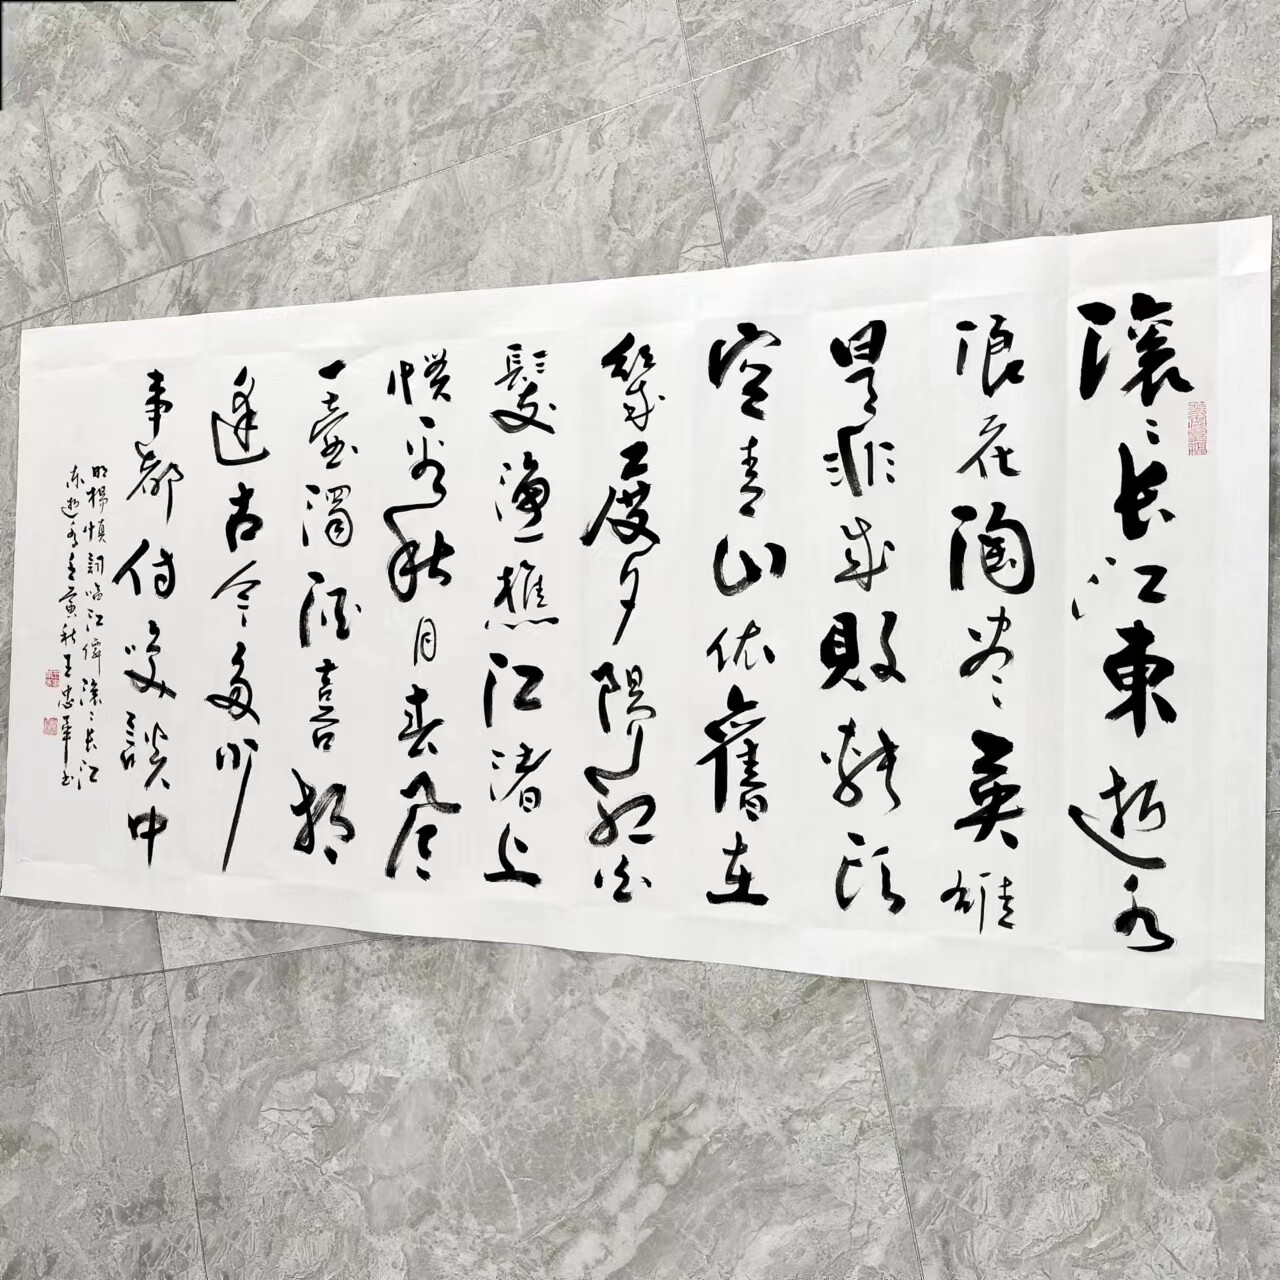 滚々长江東逝水
浪花淘尽英雄
是非成敗转头
空青山依舊在
幾度夕陽红白
髮渔樵江渚上
惯看秋月春风
一壶濁酒喜相
逢古今多少
事都付笑谈中
明楊慎詞临江仙滚々长江
东逝水壬寅秋王忠华书